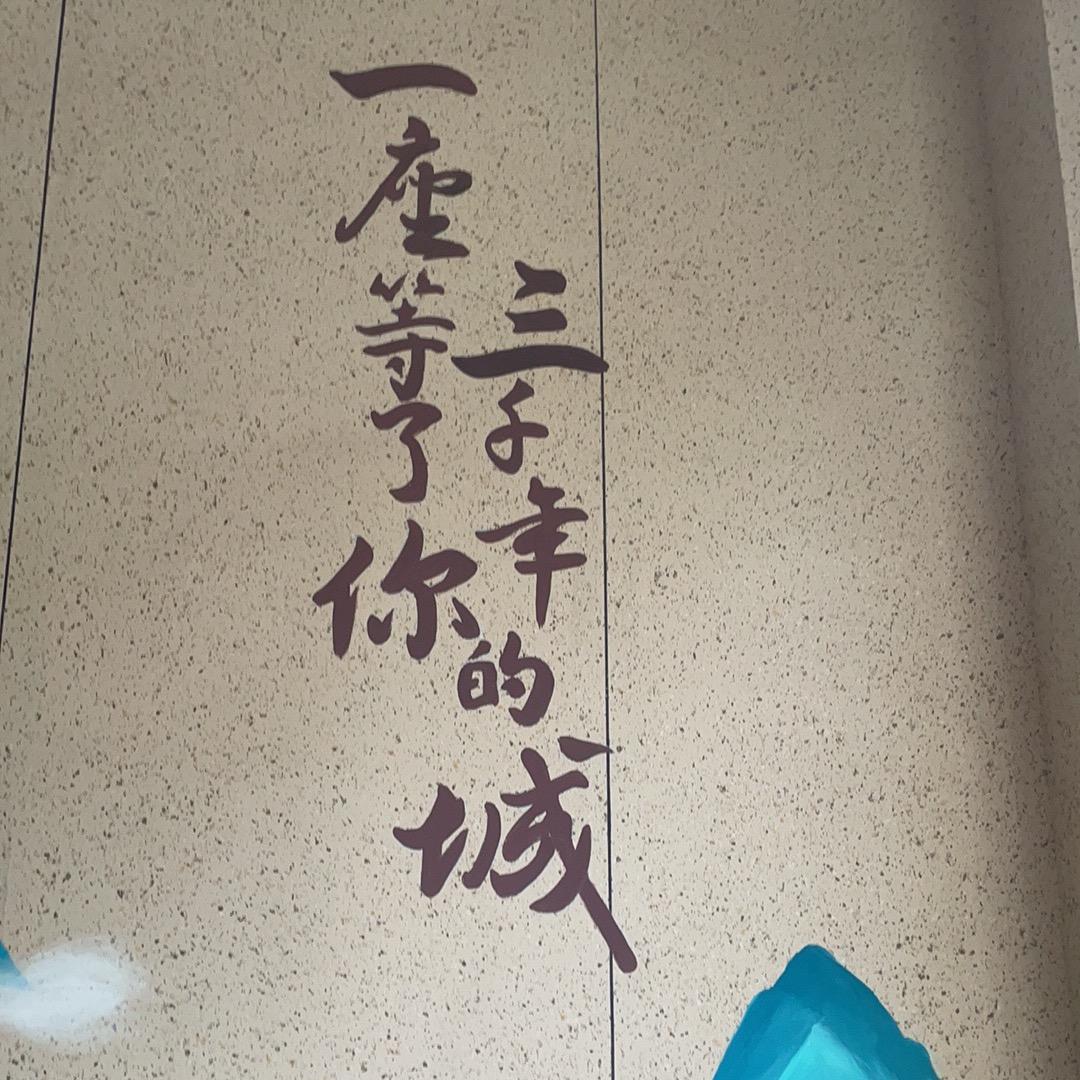 一座等了你
三千年的城